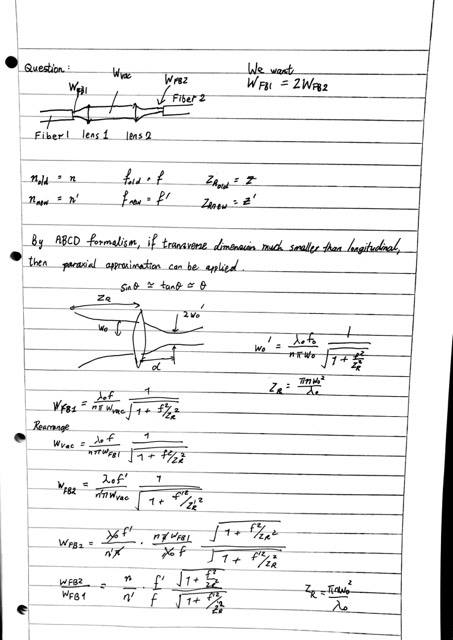 Question:
We want
W_FB1 = 2W_FB2
W_FB1
W_vac
W_FB2
Fiber 2
Fiber 1 lens 1 lens 2
n_old = n f_old = f Z_Rold = Z
n_new = n' f_new = f' Z_Rnew = Z'
By ABCD formalism, if transverse dimension much smaller than longitudinal,
then paraxial approximation can be applied.
sinθ ≃ tanθ ≃ θ
Z_R
W_0
2W_0'
d
W_0' = λ_0 f_0 / nπW_0 · 1 / √(1 + f²/Z_R²)
Z_R = πnW_0² / λ_0
W_FB1 = λ_0 f / nπW_vac · 1 / √(1 + f²/Z_R²)
Rearrange
W_vac = λ_0 f / nπW_FB1 · 1 / √(1 + f²/Z_R²)
W_FB2 = λ_0 f' / n'πW_vac · 1 / √(1 + f'²/Z_R'²)
W_FB2 = λ_0 f' / n'π · nπW_FB1 / λ_0 f · √(1 + f²/Z_R²) / √(1 + f'²/Z_R²)
W_FB2 / W_FB1 = n/n' · f'/f · √(1 + f²/Z_R²) / √(1 + f'²/Z_R²)
Z_R = πnW_0² / λ_0